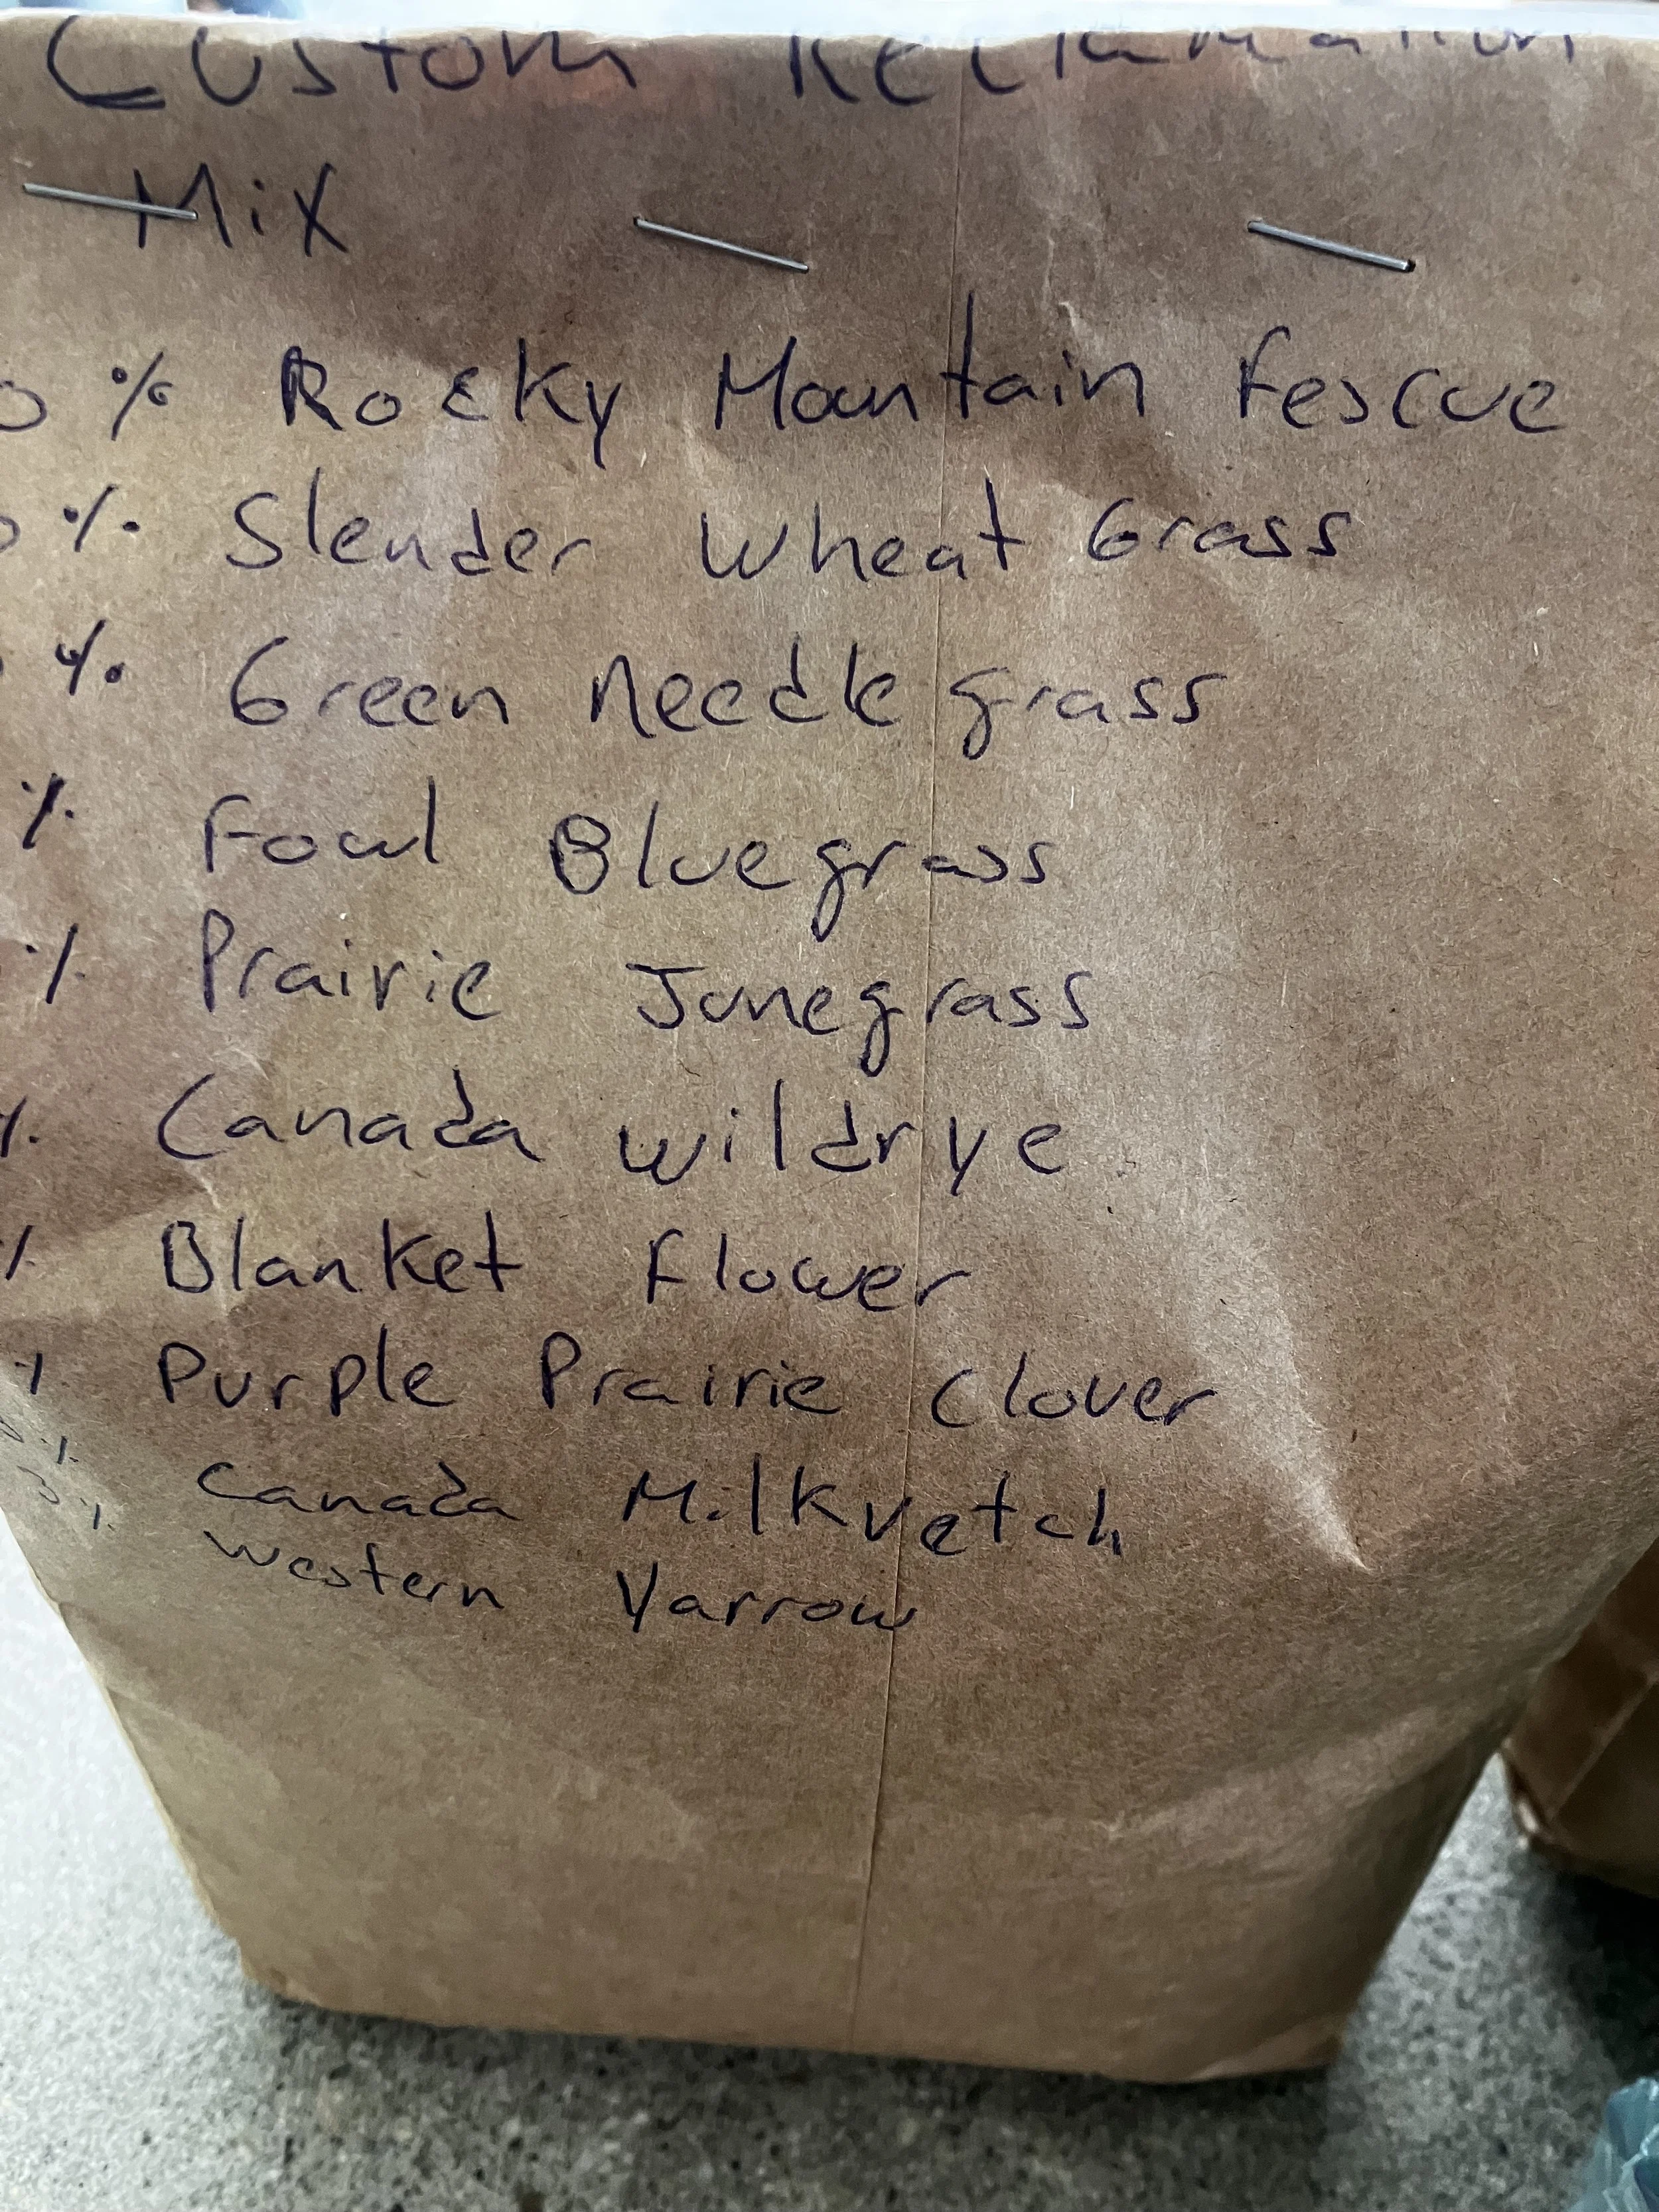 Custom Reclamation
Mix
0 % Rocky Mountain Fescue
0 % Slender Wheat Grass
% Green Needle grass
% Fowl Bluegrass
% Prairie Junegrass
% Canada wildrye
% Blanket Flower
% Purple Prairie Clover
% Canada Milkvetch
3 % Western Yarrow